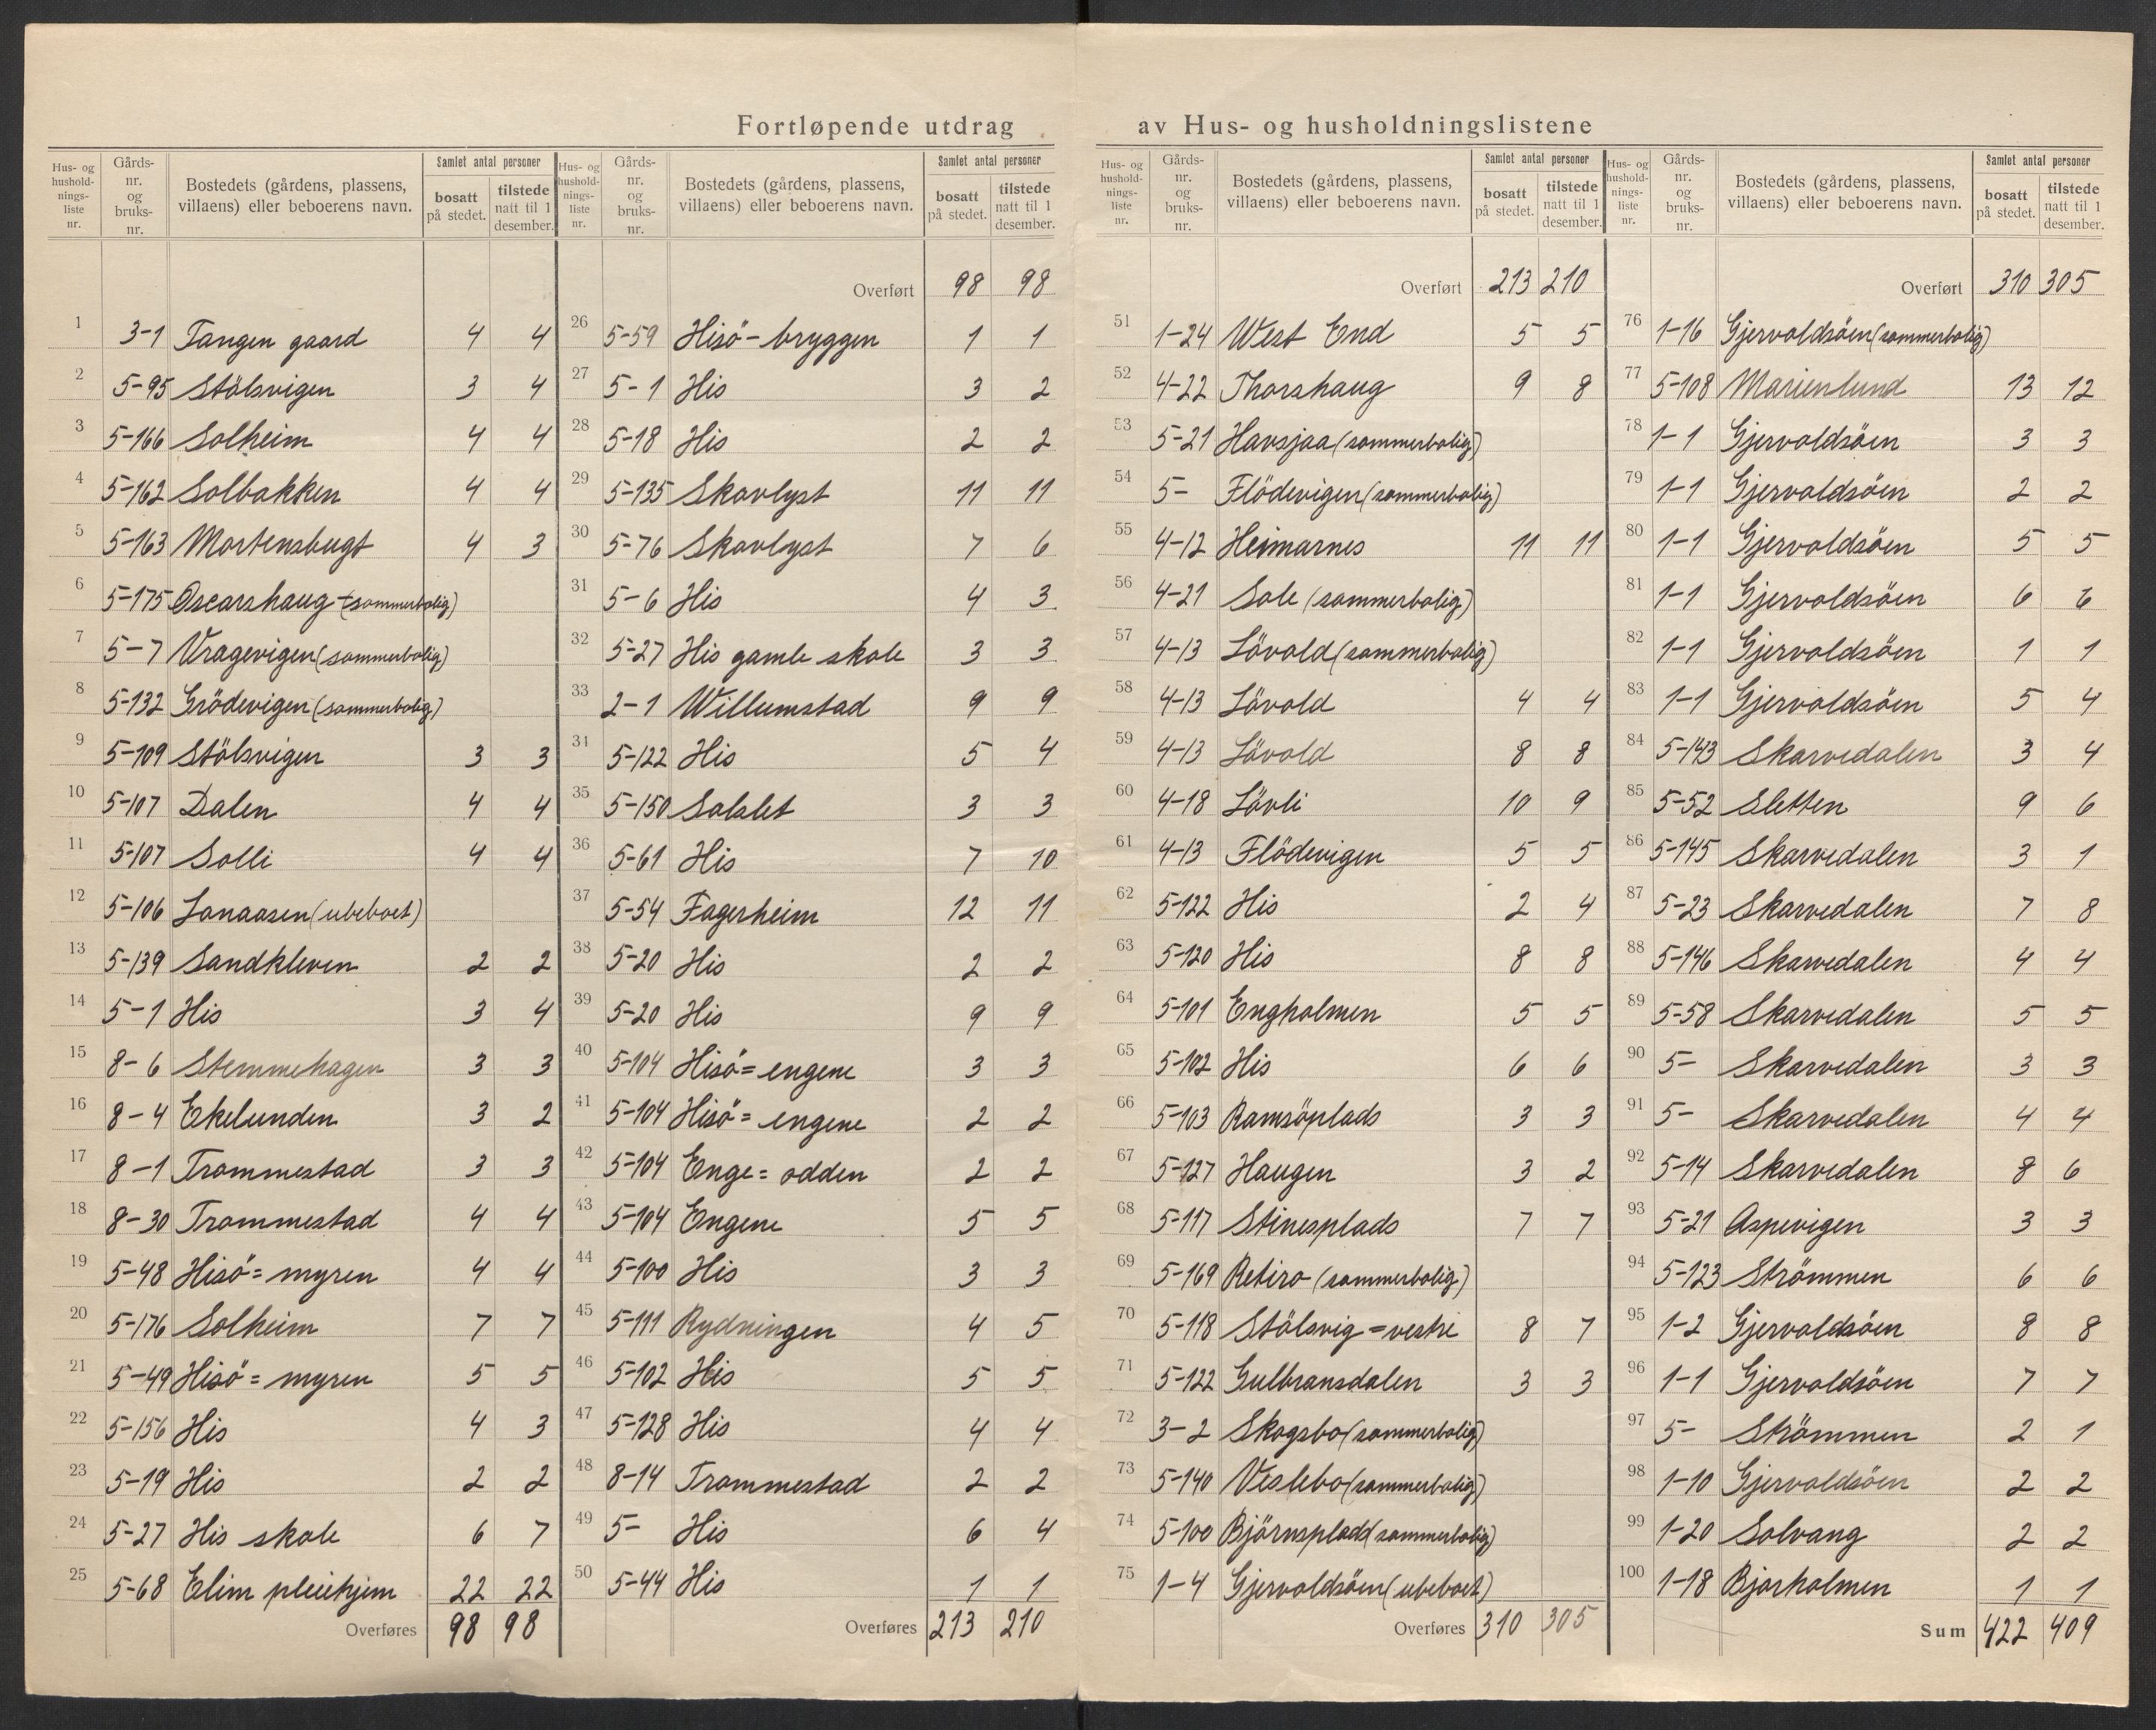 Fortløpende utdrag av Hus- og husholdningslistene
Hus- og husholdnings-liste nr. | Gårds-nr. og bruks-nr. | Bostedets (gårdens, plassens, villaens) eller beboerens navn. | Samlet antal personer | bosatt på stedet. | tilstede natt til 1 desember.
1 3-1 Tangen gaard 4 4
2 5-95 Stölsvigen 3 4
3 5-166 Solheim 4 4
4 5-162 Solbakken 4 4
5 5-163 Mortensbugt 4 3
6 5-175 Oscarshaug (sommerbolig)
7 5-7 Vragevigen (sommerbolig)
8 5-132 Grödevigen (sommerbolig)
9 5-109 Stölsvigen 3 3
10 5-107 Dalen 4 4
11 5-107 Solli 4 4
12 5-106 Lonaasen (ubeboet)
13 5-139 Sandkleven 2 2
14 5-1 His 3 4
15 8-6 Stemmehagen 3 3
16 8-4 Ekelunden 3 2
17 8-1 Trommestad 3 3
18 8-30 Trommestad 4 4
19 5-48 Hisö=myren 4 4
20 5-176 Solheim 7 7
21 5-49 Hisö=myren 5 5
22 5-156 His 4 3
23 5-19 His 2 2
24 5-27 His skole 6 7
25 5-68 Elim pleiehjem 22 22
Overføres 98 98
Hus- og husholdnings-liste nr. | Gårds-nr. og bruks-nr. | Bostedets (gårdens, plassens, villaens) eller beboerens navn. | Samlet antal personer | bosatt på stedet. | tilstede natt til 1 desember.
Overført 98 98
26 5-59 Hisö-bryggen 1 1
27 5-1 His 3 2
28 5-18 His 2 2
29 5-135 Skovlyst 11 11
30 5-76 Skovlyst 7 6
31 5-6 His 4 3
32 5-27 His gamle skole 3 3
33 2-1 Willumstad 9 9
34 5-122 His 5 4
35 5-150 Solslet 3 3
36 5-61 His 7 10
37 5-54 Fagerheim 12 11
38 5-20 His 2 2
39 5-20 His 9 9
40 5-104 Hisö=engene 3 3
41 5-104 Hisö=engene 2 2
42 5-104 Enge=odden 2 2
43 5-104 Engene 5 5
44 5-100 His 3 3
45 5-111 Rydningen 4 5
46 5-102 His 5 5
47 5-128 His 4 4
48 8-14 Trommestad 2 2
49 5- His 6 4
50 5-44 His 1 1
Overføres 213 210
Hus- og husholdnings-liste nr. | Gårds-nr. og bruks-nr. | Bostedets (gårdens, plassens, villaens) eller beboerens navn. | Samlet antal personer | bosatt på stedet. | tilstede natt til 1 desember.
Overført 213 210
51 1-24 West End 5 5
52 4-22 Thorshaug 9 8
53 5-21 Havsjaa (sommerbolig)
54 5- Flödevigen (sommerbolig)
55 4-12 Heimarnes 11 11
56 4-21 Sole (sommerbolig)
57 4-13 Lövold (sommerbolig)
58 4-13 Lövold 4 4
59 4-13 Lövold 8 8
60 4-18 Lövli 10 9
61 4-13 Flödevigen 5 5
62 5-122 His 2 4
63 5-120 His 8 8
64 5-101 Engholmen 5 5
65 5-102 His 6 6
66 5-103 Ramsöplads 3 3
67 5-127 Haugen 3 2
68 5-117 Stinesplads 7 7
69 5-169 Retiro (sommerbolig)
70 5-118 Stölsvig=vestre 8 7
71 5-122 Gulbransdalen 3 3
72 3-2 Skogsbo (sommerbolig)
73 5-140 Veslebo (sommerbolig)
74 5-100 Björnsplads (sommerbolig)
75 1-4 Gjervoldsöen (ubeboet)
Overføres 310 305
Hus- og husholdnings-liste nr. | Gårds-nr. og bruks-nr. | Bostedets (gårdens, plassens, villaens) eller beboerens navn. | Samlet antal personer | bosatt på stedet. | tilstede natt til 1 desember.
Overført 310 305
76 1-16 Gjervoldsöen (sommerbolig)
77 5-108 Marienlund 13 12
78 1-1 Gjervoldsöen 3 3
79 1-1 Gjervoldsöen 2 2
80 1-1 Gjervoldsöen 5 5
81 1-1 Gjervoldsöen 6 6
82 1-1 Gjervoldsöen 1 1
83 1-1 Gjervoldsöen 5 4
84 5-143 Skarvedalen 3 4
85 5-52 Sletten 9 6
86 5-145 Skarvedalen 3 1
87 5-23 Skarvedalen 7 8
88 5-146 Skarvedalen 4 4
89 5-58 Skarvedalen 5 5
90 5- Skarvedalen 3 3
91 5- Skarvedalen 4 4
92 5-14 Skarvedalen 8 6
93 5-21 Aspevigen 3 3
94 5-123 Strömmen 6 6
95 1-2 Gjervoldsöen 8 8
96 1-1 Gjervoldsöen 7 7
97 5- Strömmen 2 1
98 1-10 Gjervoldsöen 2 2
99 1-20 Solvang 2 2
100 1-18 Bjorholmen 1 1
Sum 422 409